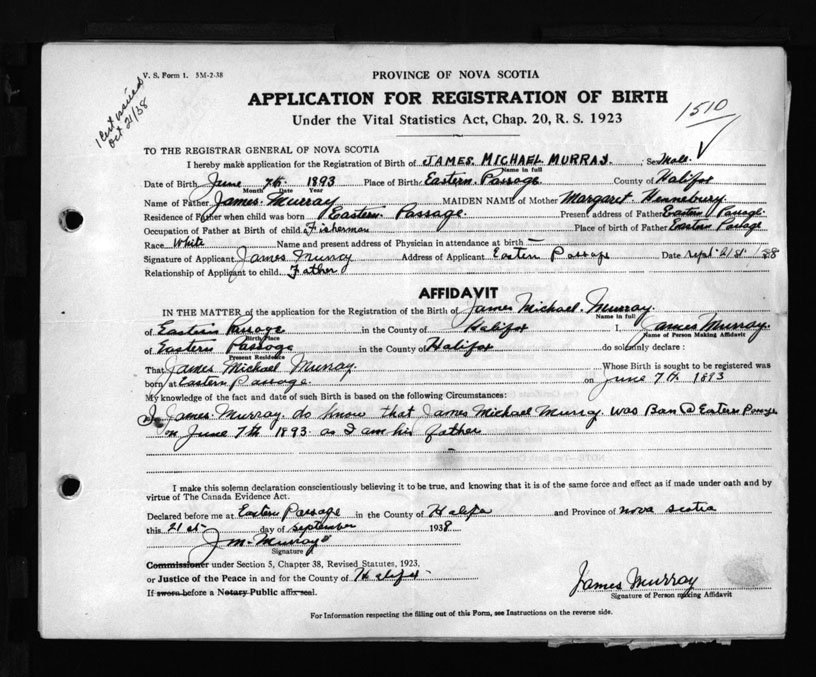 V. S. Form 1. 5M-2-38
1 Cert issued
Oct 21/38
PROVINCE OF NOVA SCOTIA
APPLICATION FOR REGISTRATION OF BIRTH
Under the Vital Statistics Act, Chap. 20, R. S. 1923
1510
TO THE REGISTRAR GENERAL OF NOVA SCOTIA
I hereby make application for the Registration of Birth of JAMES MICHAEL MURRAY. Sex Male.
Name in full
Date of Birth June 7th. 1893 Place of Birth Eastern Passage County of Halifax
Month Date Year
Name of Father James Murray MAIDEN NAME of Mother Margaret Hennebury
Residence of Father when child was born Eastern Passage. Present address of Father Eastern Passage.
Occupation of Father at Birth of child. Fisherman Place of birth of Father Eastern Passage
Race White Name and present address of Physician in attendance at birth —
Signature of Applicant James Murray Address of Applicant Eastern Passage Date 21st/38
Relationship of Applicant to child. Father
AFFIDAVIT
IN THE MATTER of the application for the Registration of the Birth of James Michael. Murray.
Name in full
of Eastern Passage in the County of Halifax I, James Murray.
Birth Place Name of Person Making Affidavit
of Eastern Passage in the County of Halifax do solemnly declare :
Present Residence
That James Michael Murray. Whose Birth is sought to be registered was
born at Eastern Passage. on June 7th 1893
My knowledge of the fact and date of such Birth is based on the following Circumstances:
I James Murray. do know that James Michael Murray. was Ban @ Eastern Passage
on June 7th 1893 as I am his father
I make this solemn declaration conscientiously believing it to be true, and knowing that it is of the same force and effect as if made under oath and by
virtue of The Canada Evidence Act.
Declared before me at Eastern Passage in the County of Halifax and Province of nova scotia
this 21st day of september 1938
J.M. Murray
Signature
Commissioner under Section 5, Chapter 38, Revised Statutes, 1923.
or Justice of the Peace in and for the County of Halifax
If sworn before a Notary Public affix seal.
James Murray
Signature of Person making Affidavit
For Information respecting the filling out of this Form, see Instructions on the reverse side.